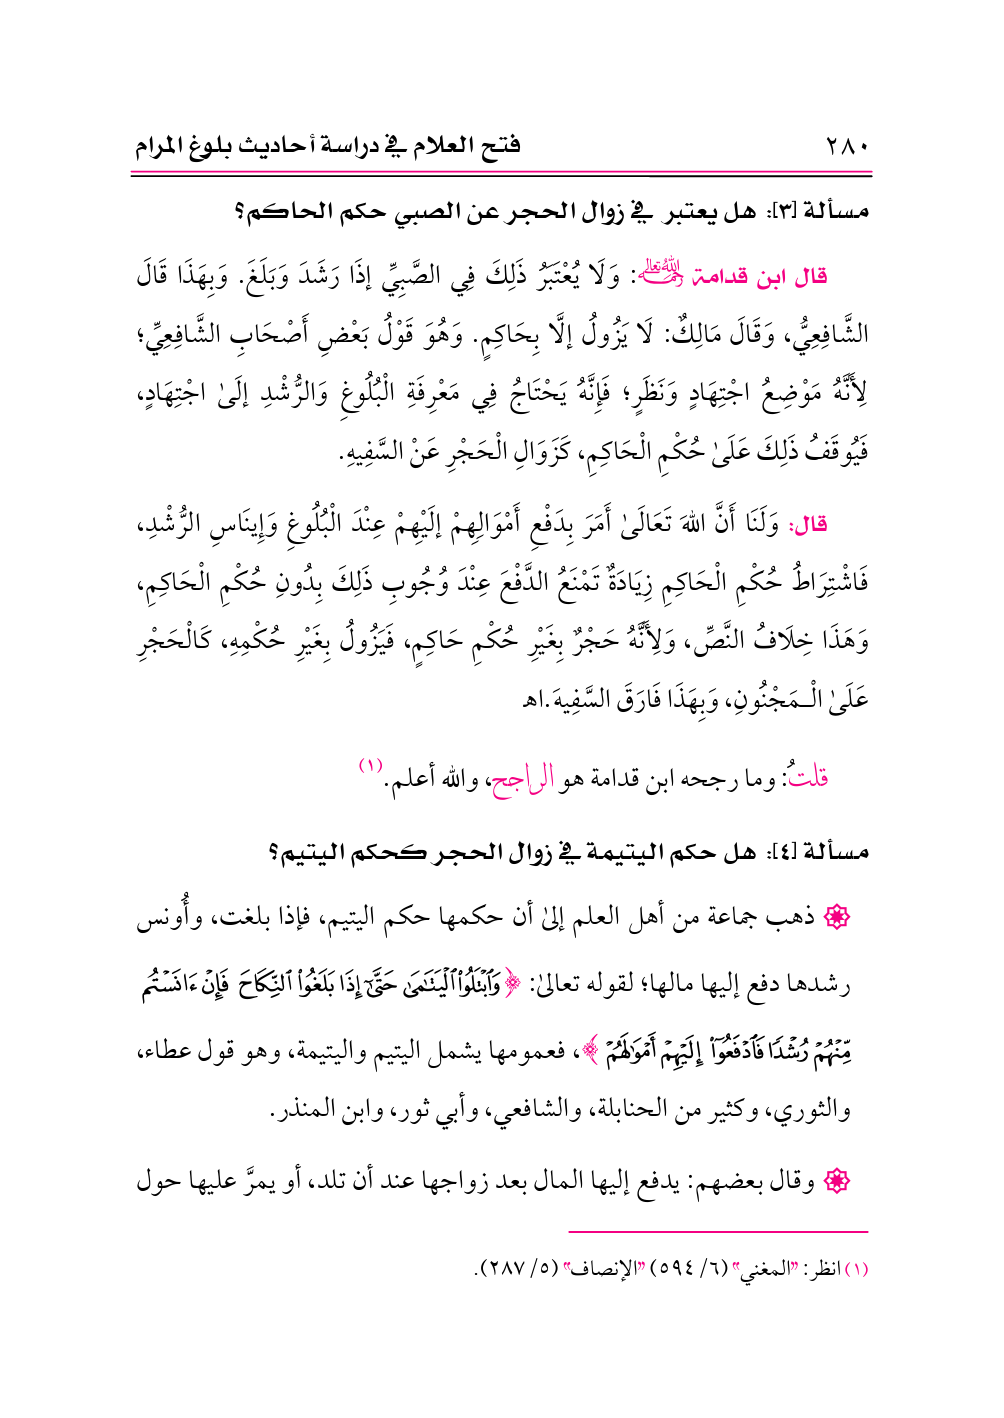 ٢٨٠ فتح العلام في دراسة أحاديث بلوغ المرام
مسألة [٣]: هل يعتبر في زوال الحجر عن الصبي حكم الحاكم؟
قال ابن قدامة رحمه الله تعالى: وَلَا يُعْتَبَرُ ذَلِكَ فِي الصَّبِيِّ إذَا رَشَدَ وَبَلَغَ. وَبِهَذَا قَالَ
الشَّافِعِيُّ، وَقَالَ مَالِكٌ: لَا يَزُولُ إلَّا بِحَاكِمٍ. وَهُوَ قَوْلُ بَعْضِ أَصْحَابِ الشَّافِعِيِّ؛
لِأَنَّهُ مَوْضِعُ اجْتِهَادٍ وَنَظَرٍ؛ فَإِنَّهُ يَحْتَاجُ فِي مَعْرِفَةِ الْبُلُوغِ وَالرُّشْدِ إلَىٰ اجْتِهَادٍ،
فَيُوقَفُ ذَلِكَ عَلَىٰ حُكْمِ الْحَاكِمِ، كَزَوَالِ الْحَجْرِ عَنْ السَّفِيهِ.
قال: وَلَنَا أَنَّ اللهَ تَعَالَىٰ أَمَرَ بِدَفْعِ أَمْوَالِهِمْ إلَيْهِمْ عِنْدَ الْبُلُوغِ وَإِينَاسِ الرُّشْدِ،
فَاشْتِرَاطُ حُكْمِ الْحَاكِمِ زِيَادَةٌ تَمْنَعُ الدَّفْعَ عِنْدَ وُجُوبِ ذَلِكَ بِدُونِ حُكْمِ الْحَاكِمِ،
وَهَذَا خِلَافُ النَّصِّ، وَلِأَنَّهُ حَجْرٌ بِغَيْرِ حُكْمِ حَاكِمٍ، فَيَزُولُ بِغَيْرِ حُكْمِهِ، كَالْحَجْرِ
عَلَىٰ الْـمَجْنُونِ، وَبِهَذَا فَارَقَ السَّفِيهَ.اهـ
قلتُ: وما رجحه ابن قدامة هو الراجح، والله أعلم.(١)
مسألة [٤]: هل حكم اليتيمة في زوال الحجر كحكم اليتيم؟
ذهب جماعة من أهل العلم إلىٰ أن حكمها حكم اليتيم، فإذا بلغت، وأُونس
رشدها دفع إليها مالها؛ لقوله تعالىٰ: ﴿وَٱبۡتَلُواْ ٱلۡيَتَٰمَىٰ حَتَّىٰٓ إِذَا بَلَغُواْ ٱلنِّكَاحَ فَإِنۡ ءَانَسۡتُم
مِّنۡهُمۡ رُشۡدٗا فَٱدۡفَعُوٓاْ إِلَيۡهِمۡ أَمۡوَٰلَهُمۡ﴾، فعمومها يشمل اليتيم واليتيمة، وهو قول عطاء،
والثوري، وكثير من الحنابلة، والشافعي، وأبي ثور، وابن المنذر.
وقال بعضهم: يدفع إليها المال بعد زواجها عند أن تلد، أو يمرَّ عليها حول
(١) انظر: "المغني" (٦/ ٥٩٤) "الإنصاف" (٥/ ٢٨٧).